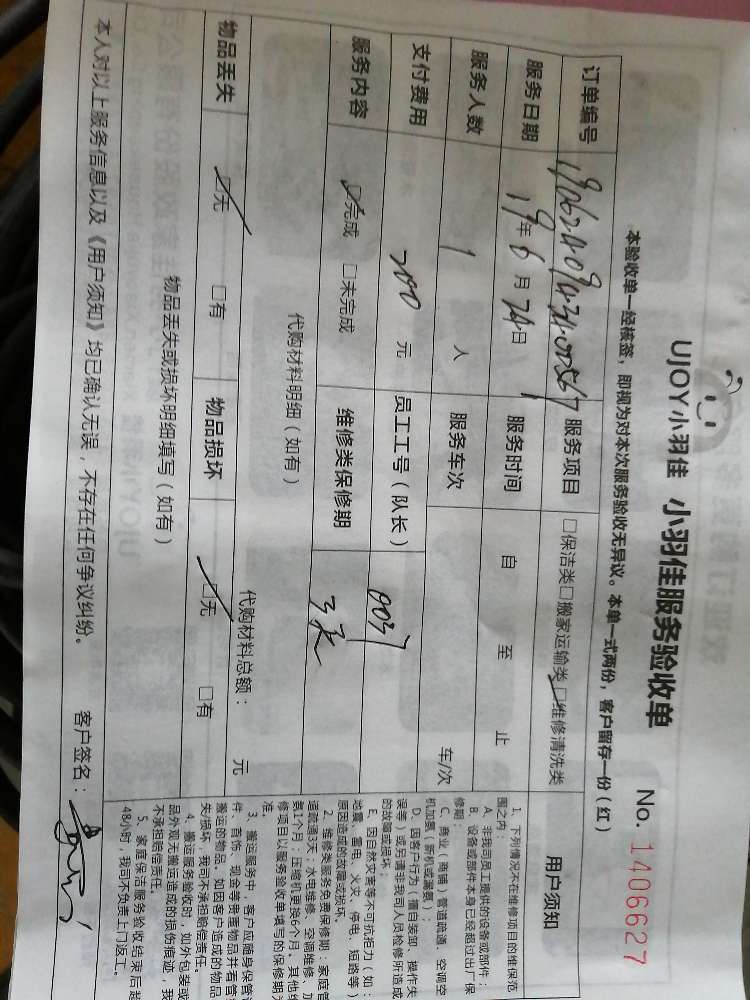 UJOY小羽佳 小羽佳服务验收单 No. 1406627
本验收单一经核签，即视为对本次服务验收无异议。本单一式两份，客户留存一份（红）
订单编号 服务项目 □保洁类□搬家运输类□维修清洗类
服务日期 19年6月24日 服务时间 自 至 止
服务人数 1 人 服务车次 车/次
支付费用 200 元 员工工号（队长） 003
服务内容 ☑完成 □未完成 维修类保修期 3天
代购材料明细（如有） 代购材料总额： 元
物品丢失 ☑无 □有 物品损坏 ☑无 □有
物品丢失或损坏明细填写（如有）
本人对以上服务信息以及《用户须知》均已确认无误，不存在任何争议纠纷。 客户签名：
用户须知
1、下列情况不在维修项目的维保范
围之内：
A、非我司员工提供的设备或部件；
B、设备或部件本身已经超过出厂保
修期；
C、商业（商铺）管道疏通、空调空
机加氨（新机或漏氨）；
D、因客户行为（擅自装卸、操作失
误等）或另请非我司人员检修所造成
的故障或损坏；
E、因自然灾害等不可抗拒力（如：
地震、雷电、火灾、停电、短路等）
原因造成的故障或损坏。
2、维修类服务免费保修期：家庭管
道疏通3天；水电维修、空调维修、加
氨1个月；压缩机更换6个月。其他维
修项目以服务验收单填写的保修期为
准。
3、搬运服务中，客户应随身保管证
件、首饰、现金等贵重物品并看管
搬运的物品。如因客户造成的物品
失/损坏，我司不承担赔偿责任。
4、搬运服务验收时，如外包装或
品外观无搬运造成的损伤痕迹，我
不承担赔偿责任。
5、家庭保洁服务验收结束后超
48小时，我司不负责上门返工。